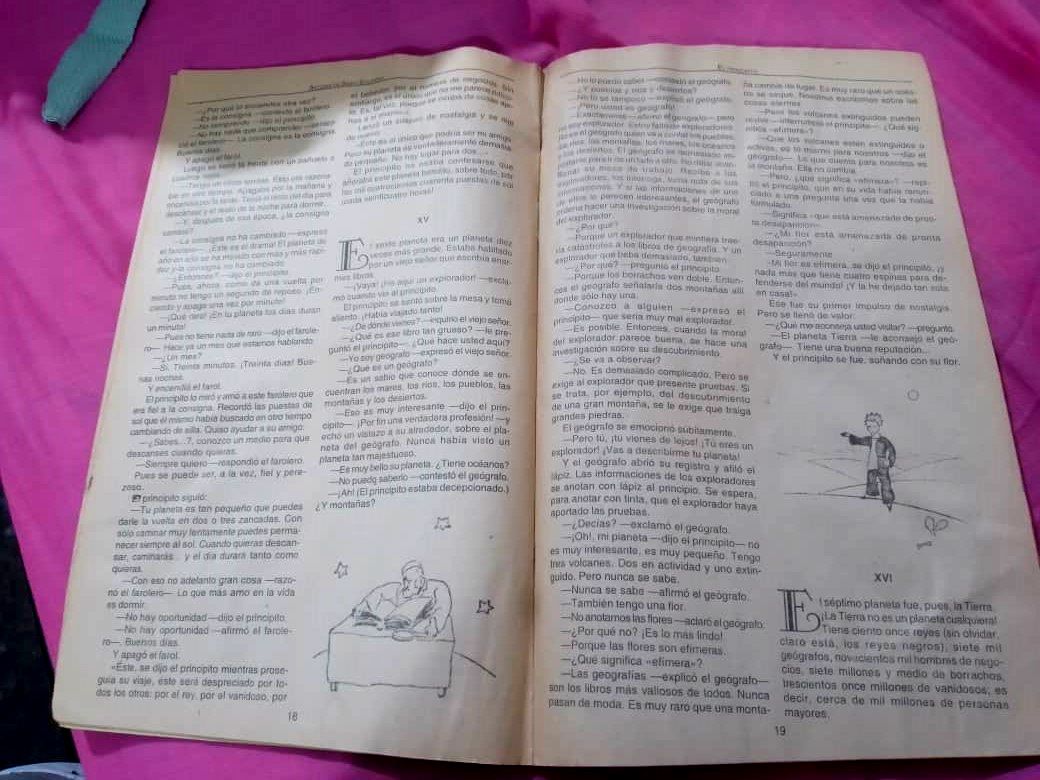 ANTOINE DE SAINT-EXUPÉRY
—¿Por qué lo enciendes otra vez?
—Es la consigna —contestó el farolero.
—No comprendo —dijo el principito.
—No hay nada que comprender —
ció el farolero—. La consigna es la consigna.
Buenos días.
Y apagó el farol.
Luego se secó la frente con un pañuelo a
cuadros
—Tengo un oficio terrible. Esto era razona-
ble en otro tiempo. Apagaba por la mañana y
encendía por la tarde. Tenía el resto del día para
descansar y el resto de la noche para dormir...
—Y, después de esa época, ¿la consigna
cambió?
—La consigna no ha cambiado —expresó
el farolero—. ¡Este es el drama! El planeta de
año en año se ha movido con más y más rapi-
dez ¡y la consigna no ha cambiado!
—¿Entonces? —dijo el principito.
—Pues, ahora, como da una vuelta por
minuto no tengo un segundo de reposo. ¡En-
ciendo y apago una vez por minuto!
—¡Qué raro! ¡En tu planeta los días duran
un minuto!
—Pues no tiene nada de raro —dijo el farole-
ro—. Hace ya un mes que estamos hablando.
—¿Un mes?
—Sí. Treinta minutos. ¡Treinta días! Bue-
nas noches.
Y encendió el farol.
El principito lo miró y amó a este farolero que
era fiel a la consigna. Recordó las puestas de
sol que él mismo había buscado en otro tiempo
cambiando de silla. Quiso ayudar a su amigo:
—¿Sabes...?, conozco un medio para que
descanses cuando quieras.
—Siempre quiero —respondió el farolero.
Pues se puede ser, a la vez, fiel y pere-
zoso.
El principito siguió:
—Tu planeta es tan pequeño que puedes
darle la vuelta en dos o tres zancadas. Con
sólo caminar muy lentamente puedes perma-
necer siempre al sol. Cuando quieras descan-
sar, caminarás... y el día durará tanto como
quieras.
—Con eso no adelanto gran cosa —razo-
nó el farolero—. Lo que más amo en la vida
es dormir.
—No hay oportunidad —dijo el principito.
—No hay oportunidad —afirmó el farole-
ro—. Buenos días.
Y apagó el farol.
«Éste, se dijo el principito mientras prose-
guía su viaje, éste será despreciado por to-
dos los otros: por el rey, por el vanidoso, por
el bebedor, por el hombre de negocios. Sin
embargo, es el único que no me parece ridícu-
lo. Es, tal vez, porque se ocupa de cosas aje-
nas a sí mismo.»
Lanzó un suspiro de nostalgia y se dijo
de nuevo:
«Éste es el único que podría ser mi amigo.
Pero su planeta es verdaderamente demasia-
do pequeño. No hay lugar para dos...»
El principito no osaba confesarse que
añoraba este planeta bendito, sobre todo, por
las mil cuatrocientos cuarenta puestas de sol
¡cada veinticuatro horas!
XV
El sexto planeta era un planeta diez
veces más grande. Estaba habitado
por un viejo señor que escribía enor-
mes libros.
—¡Vaya! ¡He aquí un explorador! —excla-
mó cuando vio al principito.
El principito se sentó sobre la mesa y tomó
aliento. ¡Había viajado tanto!
—¿De dónde vienes? —inquirió el viejo señor.
—¿Qué es ese libro tan grueso? —le pre-
guntó el principito—. ¿Qué hace usted aquí?
—Yo soy geógrafo —expresó el viejo señor.
—¿Qué es un geógrafo?
—Es un sabio que conoce dónde se en-
cuentran los mares, los ríos, los pueblos, las
montañas y los desiertos.
—Eso es muy interesante —dijo el prin-
cipito—. ¡Por fin una verdadera profesión! —y
echó un vistazo a su alrededor, sobre el pla-
neta del geógrafo. Nunca había visto un
planeta tan majestuoso.
—Es muy bello su planeta. ¿Tiene océanos?
—No puedo saberlo —contestó el geógrafo.
—¡Ah! (El principito estaba decepcionado.)
¿Y montañas?
18
EL PRINCIPITO
—No lo puedo saber —contestó el geógrafo.
—¿Y pueblos y ríos y desiertos?
—No lo sé tampoco —expresó el geógrafo.
—¡Pero usted es geógrafo!
—Exactamente —afirmó el geógrafo—, pero
no soy explorador. Estoy falto de exploradores.
No es el geógrafo quien va a contar los pueblos,
los ríos, las montañas, los mares, los océanos
y los desiertos. El geógrafo es demasiado im-
portante para ir de un lado a otro. No debe aban-
donar su mesa de trabajo. Recibe a los
exploradores, los interroga, toma nota de sus
informaciones. Y si las informaciones de uno
de ellos le parecen interesantes, el geógrafo
ordena hacer una investigación sobre la moral
del explorador.
—¿Por qué?
—Porque un explorador que mintiera trae-
ría catástrofes a los libros de geografía. Y un
explorador que beba demasiado, también.
—¿Por qué? —preguntó el principito.
—Porque los borrachos ven doble. Enton-
ces el geógrafo señalaría dos montañas allí
donde sólo hay una.
—Conozco a alguien —expresó el
principito— que sería muy mal explorador.
—Es posible. Entonces, cuando la moral
del explorador parece buena, se hace una
investigación sobre su descubrimiento.
—¿Se va a observar?
—No. Es demasiado complicado. Pero se
exige al explorador que presente pruebas. Si
se trata, por ejemplo, del descubrimiento
de una gran montaña, se le exige que traiga
grandes piedras.
El geógrafo se emocionó súbitamente.
—Pero tú, ¡tú vienes de lejos! ¡Tú eres un
explorador! ¡Vas a describirme tu planeta!
Y el geógrafo abrió su registro y afiló el
lápiz. Las informaciones de los exploradores
se anotan con lápiz al principio. Se espera,
para anotar con tinta, que el explorador haya
aportado las pruebas.
—¿Decías? —exclamó el geógrafo.
—¡Oh!, mi planeta —dijo el principito— no
es muy interesante, es muy pequeño. Tengo
tres volcanes. Dos en actividad y uno extin-
guido. Pero nunca se sabe.
—Nunca se sabe —afirmó el geógrafo.
—También tengo una flor.
—No anotamos las flores —aclaró el geógrafo.
—¿Por qué no? ¡Es lo más lindo!
—Porque las flores son efímeras.
—¿Qué significa «efímera»?
—Las geografías —explicó el geógrafo—
son los libros más valiosos de todos. Nunca
pasan de moda. Es muy raro que una monta-
ña cambie de lugar. Es muy raro que un océa-
no se seque. Nosotros escribimos sobre las
cosas eternas.
—Pero los volcanes extinguidos pueden
revivir —interrumpió el principito—. ¿Qué sig-
nifica «efímera»?
—Que los volcanes estén extinguidos o
activos, es lo mismo para nosotros —dijo el
geógrafo—. Lo que cuenta para nosotros es
la montaña. Ella no cambia.
—Pero, ¿qué significa «efímera»? —repi-
tió el principito, que en su vida había renun-
ciado a una pregunta una vez que la había
formulado.
—Significa «que está amenazada de pron-
ta desaparición».
—¿Mi flor está amenazada de pronta
desaparición?
—Seguramente.
«Mi flor es efímera, se dijo el principito, ¡y
nada más que tiene cuatro espinas para de-
fenderse del mundo! ¡Y la he dejado tan sola
en casa!»
Ese fue su primer impulso de nostalgia.
Pero se llenó de valor:
—¿Qué me aconseja usted visitar? —preguntó.
—El planeta Tierra —le aconsejó el geó-
grafo—. Tiene una buena reputación...
Y el principito se fue, soñando con su flor.
XVI
El séptimo planeta fue, pues, la Tierra.
¡La Tierra no es un planeta cualquiera!
Tiene ciento once reyes (sin olvidar,
claro está, los reyes negros), siete mil
geógrafos, novecientos mil hombres de nego-
cios, siete millones y medio de borrachos,
trescientos once millones de vanidosos; es
decir, cerca de mil millones de personas
mayores.
19